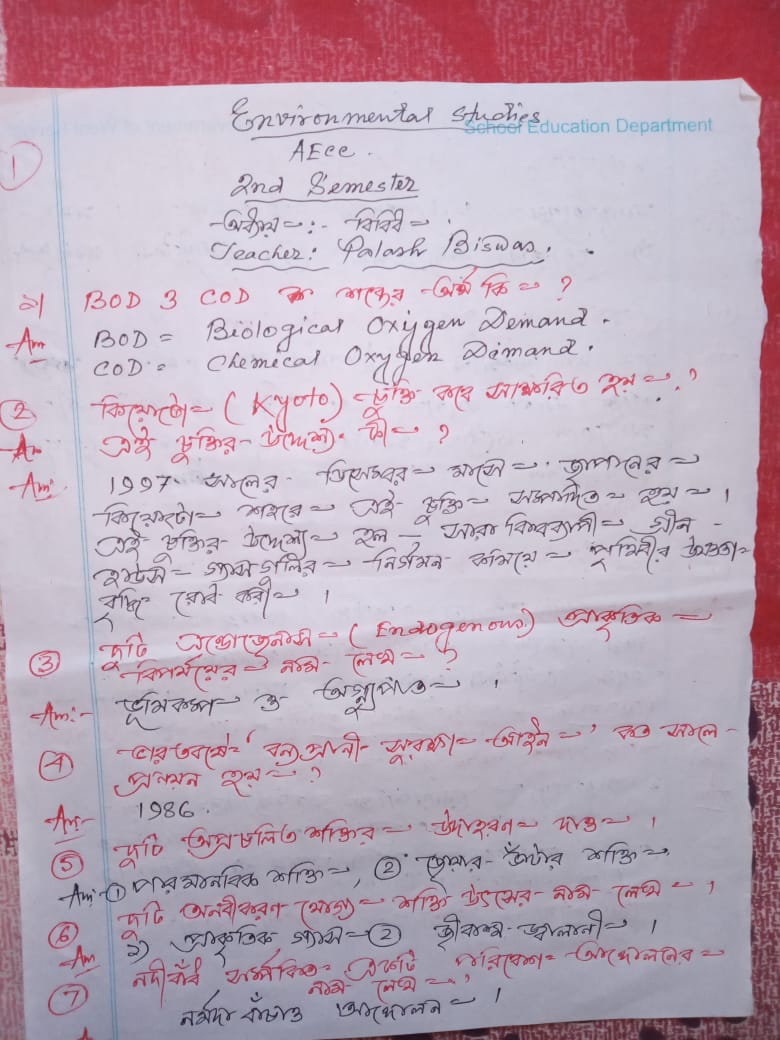 Environmental Studies
School Education Department
AECC.
1
2nd Semester
অধ্যায় :- বিবিধ
Teacher: Palash Biswas.
১) BOD ও COD শব্দের অর্থ কি ?
Ans BOD = Biological Oxygen Demand.
COD = Chemical Oxygen Demand.
② কিয়োটো (Kyoto) চুক্তি কবে স্বাক্ষরিত হয় ?
এই চুক্তির উদ্দেশ্য কী ?
Ans: 1997 সালের ডিসেম্বর মাসে জাপানের
কিয়োটো শহরে এই চুক্তি সম্পাদিত হয় ।
এই চুক্তির উদ্দেশ্য হল – সারা বিশ্বব্যাপী গ্রীন
হাউস গ্যাসগুলির নির্গমন কমিয়ে পৃথিবীর উষ্ণতা
বৃদ্ধি রোধ করা ।
③ দুটি এন্ডোজেনাস (Endogenous) প্রাকৃতিক
বিপর্যয়ের নাম লেখ ?
Ans:- ভূমিকম্প ও অগ্ন্যুৎপাত ।
④ ভারতবর্ষে 'বন্যপ্রানী সুরক্ষা আইন' কত সালে
প্রনয়ন হয় ?
Ans:- 1986.
⑤ দুটি অপ্রচলিত শক্তির উদাহরণ দাও ।
Ans:- ① পারমানবিক শক্তি, ② জোয়ার ভাঁটার শক্তি
⑥ দুটি অনবীকরণ যোগ্য শক্তি উৎসের নাম লেখ ।
Ans ১) প্রাকৃতিক গ্যাস ② জীবাশ্ম জ্বালানী ।
⑦ নদীবাঁধ সম্পর্কিত একটি পরিবেশ আন্দোলনের
নাম লেখ ?
নর্মদা বাঁচাও আন্দোলন ।